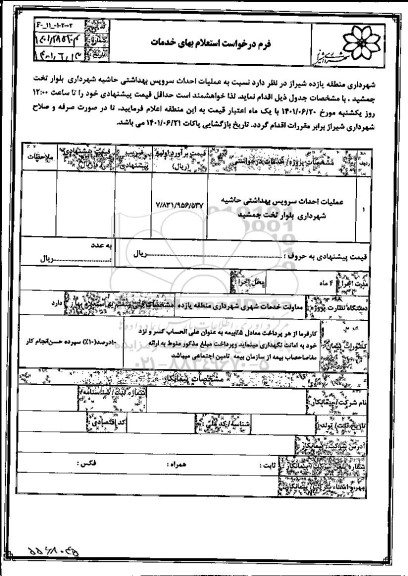 F-11-01-2-02
فرم درخواست استعلام بهای خدمات
شهرداری منطقه یازده شیراز در نظر دارد نسبت به عملیات احداث سرویس بهداشتی حاشیه شهرداری بلوار تخت
جمشید ، با مشخصات جدول ذیل اقدام نماید. لذا خواهشمند است حداقل قیمت پیشنهادی خود را تا ساعت ۱۲:۰۰
روز یکشنبه مورخ ۱۴۰۱/۰۶/۲۰ با یک ماه اعتبار قیمت به این منطقه اعلام فرمایید، تا در صورت صرفه و صلاح
شهرداری شیراز برابر مقررات اقدام گردد. تاریخ بازگشایی پاکات ۱۴۰۱/۰۶/۲۱ می باشد.
ردیف مشخصات پروژه/ خدمات درخواستی قیمت برآورد اولیه ملاحظات
۱ عملیات احداث سرویس بهداشتی حاشیه ۷/۸۳۱/۹۵۶/۵۳۷
شهرداری بلوار تخت جمشید
قیمت پیشنهادی به حروف : ریال به عدد
ریال
مدت اجرا ۴ ماه محل اجرا
دستگاه نظارت پروژه معاونت خدمات شهری شهرداری منطقه یازده
کارفرما از هر پرداخت معادل ۵٪بیمه به عنوان علی الحساب کسر و نزد
خود به امانت نگهداری مینماید، وپرداخت مبلغ مذکور منوط به ارائه
مفاصاحساب بیمه از سازمان بیمه تامین اجتماعی میباشد
۱۰درصد(۱۰٪) سپرده حسن‌انجام کار
مشخصات پیمانکار
نام شرکت/پیمانکار
شناسه/کد ملی کد اقتصادی
آدرس شرکت/پیمانکار
ثابت : همراه : فکس :